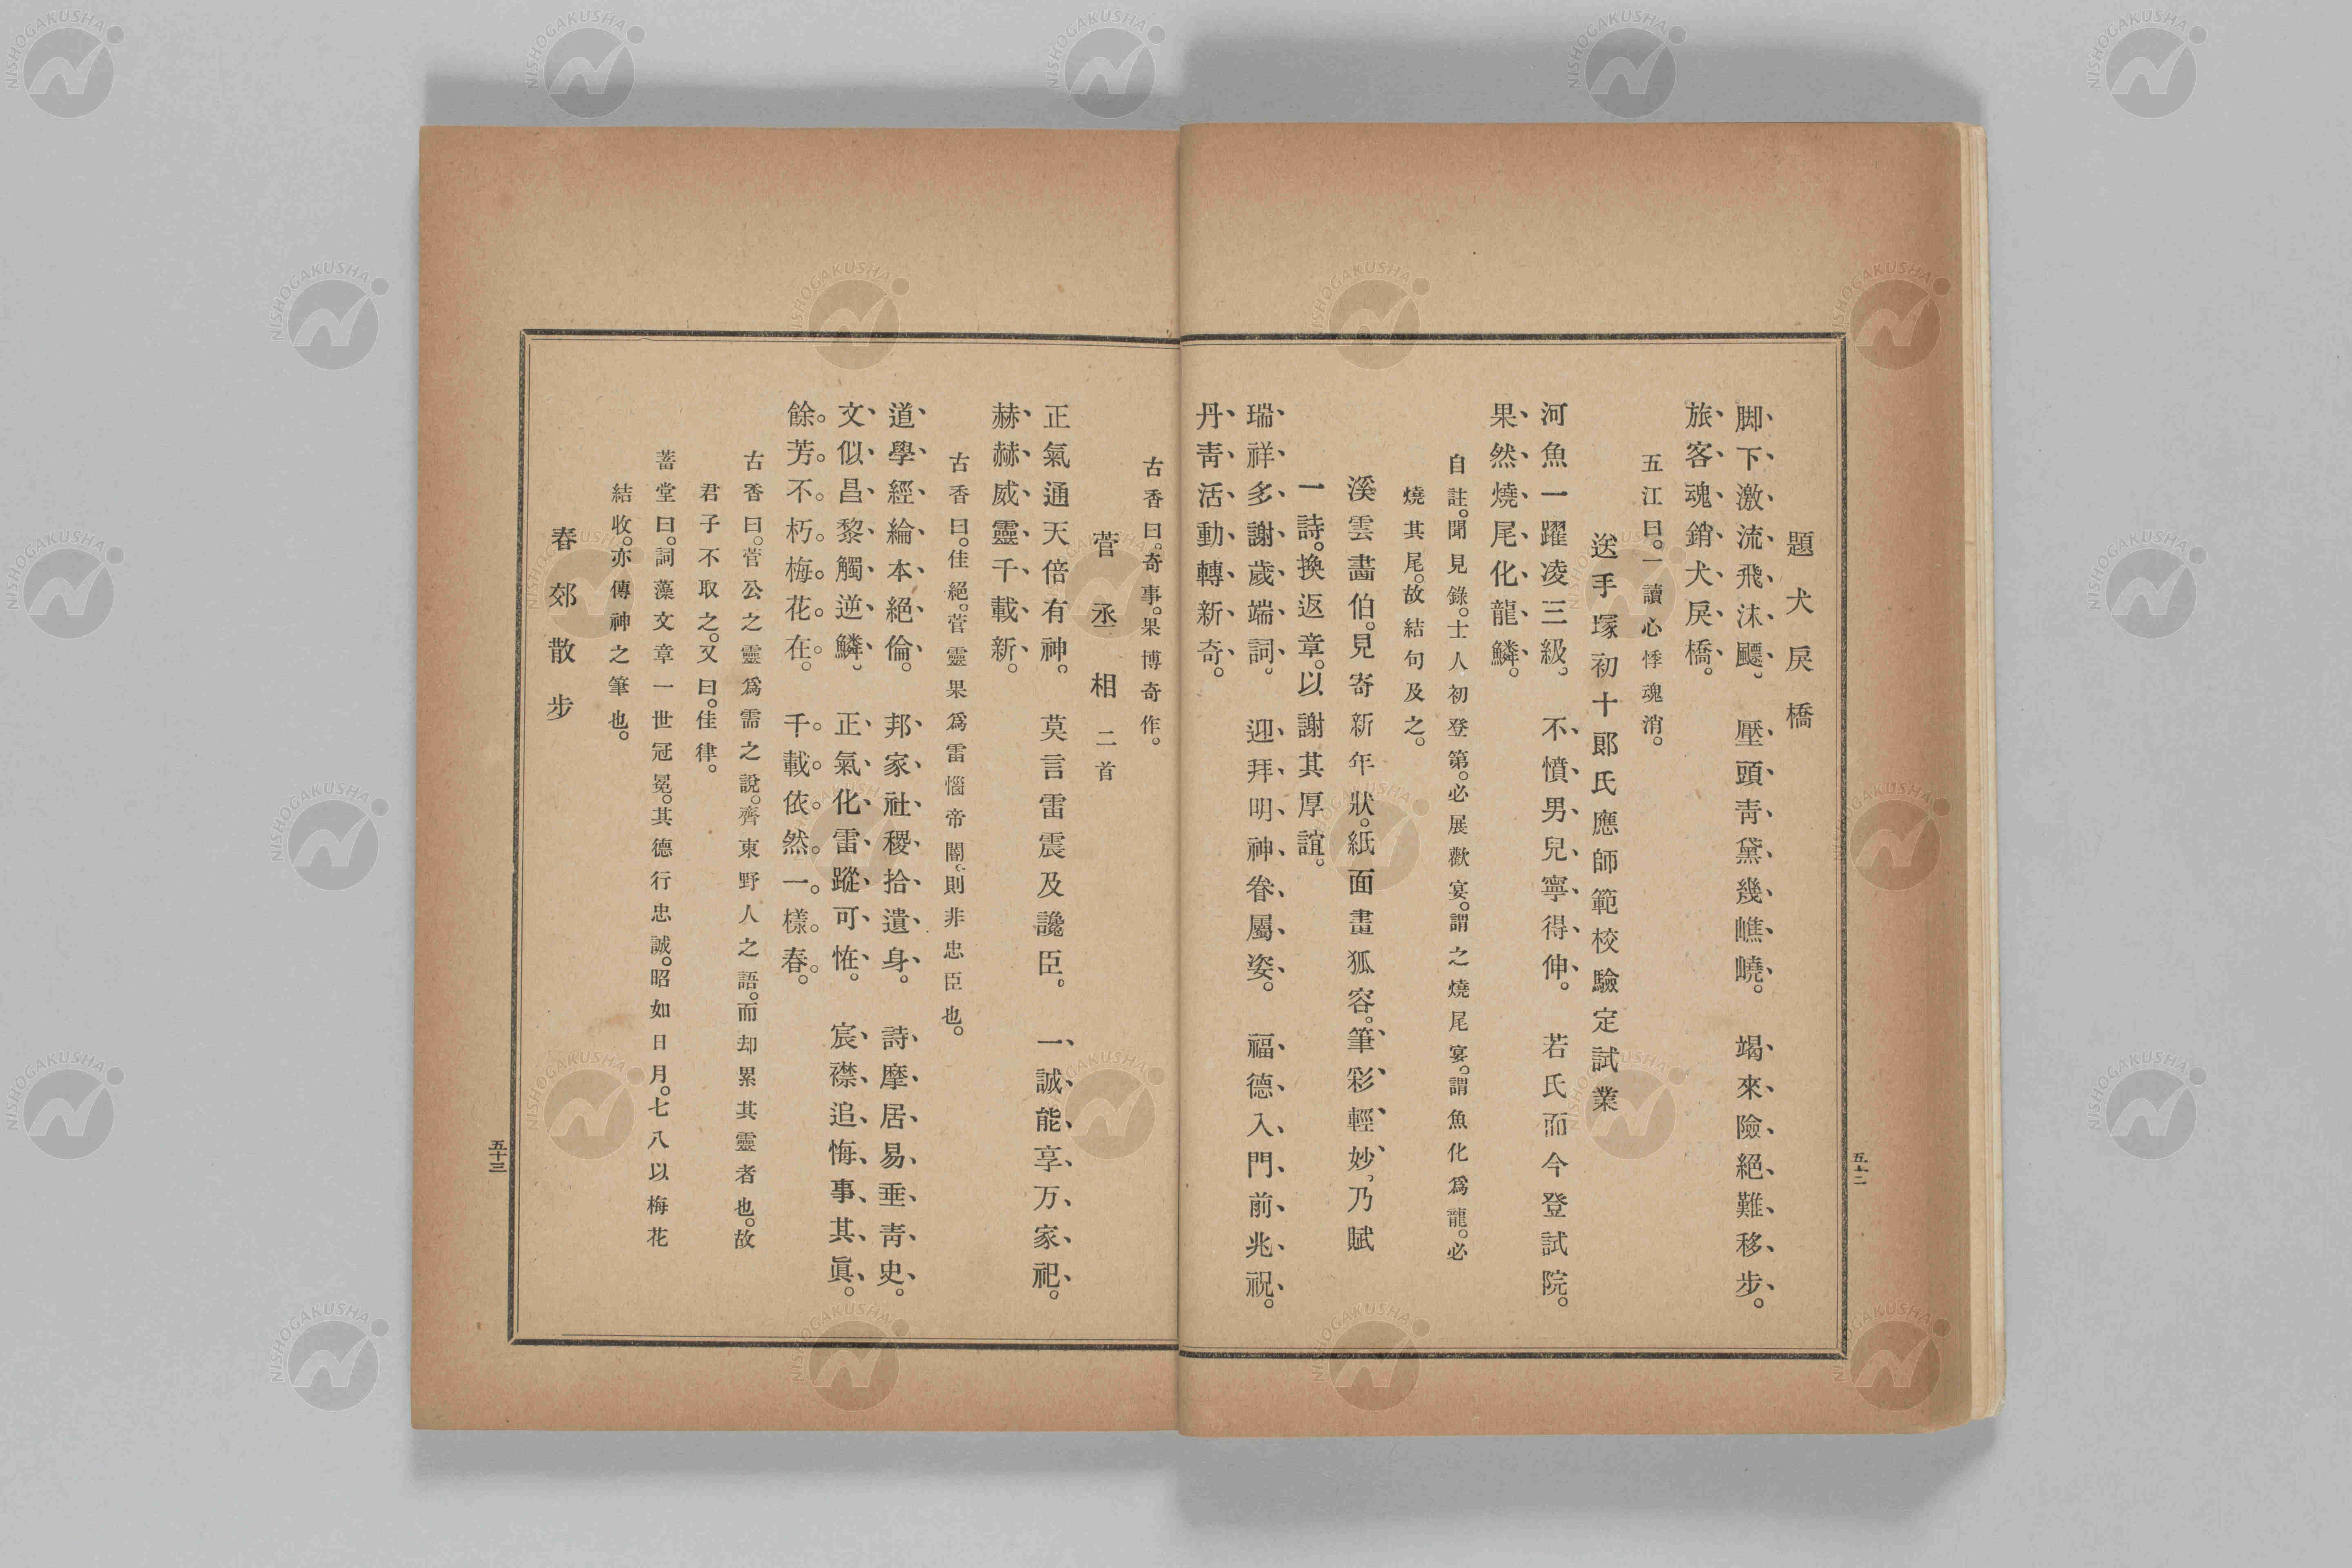 題犬戾橋
脚下激流飛沫飃。壓頭靑黛幾嶕嶢。竭來險絕難移步。
旅客魂銷犬戾橋。
五江曰。一讀心悸魂消。
送手塚初十郞氏應師範校驗定試業
河魚一躍凌三級。不憤男兒寧得伸。若氏而今登試院。
果然燒尾化龍鱗。
自註。聞見錄。士人初登第。必展歡宴。謂之燒尾宴。謂魚化爲龍。必
燒其尾。故結句及之。
溪雲畵伯。見寄新年狀。紙面畫狐容。筆彩輕妙。乃賦
一詩。換返章。以謝其厚誼。
瑞祥多謝歲端詞。迎拜明神眷屬姿。福德入門前兆祝。
丹靑活動轉新奇。
五十二
古香曰。奇事。果博奇作。
菅丞相二首
正氣通天倍有神。莫言雷震及讒臣。一誠能享万家祀。
赫赫威靈千載新。
古香曰。佳絕。菅靈果爲雷惱帝閽。則非忠臣也。
道學經綸本絕倫。邦家社稷拾遺身。詩摩居易垂靑史。
文似昌黎觸逆鱗。正氣化雷蹤可恠。宸襟追悔事其眞。
餘芳不朽梅花在。千載依然一樣春。
古香曰。菅公之靈爲雷之說。齊東野人之語。而却累其靈者也。故
君子不取之。又曰。佳律。
蓄堂曰。詞藻文章一世冠冕。其德行忠誠。昭如日月。七八以梅花
結收。亦傳神之筆也。
春郊散步
五十三
NISHOGAKUSHA